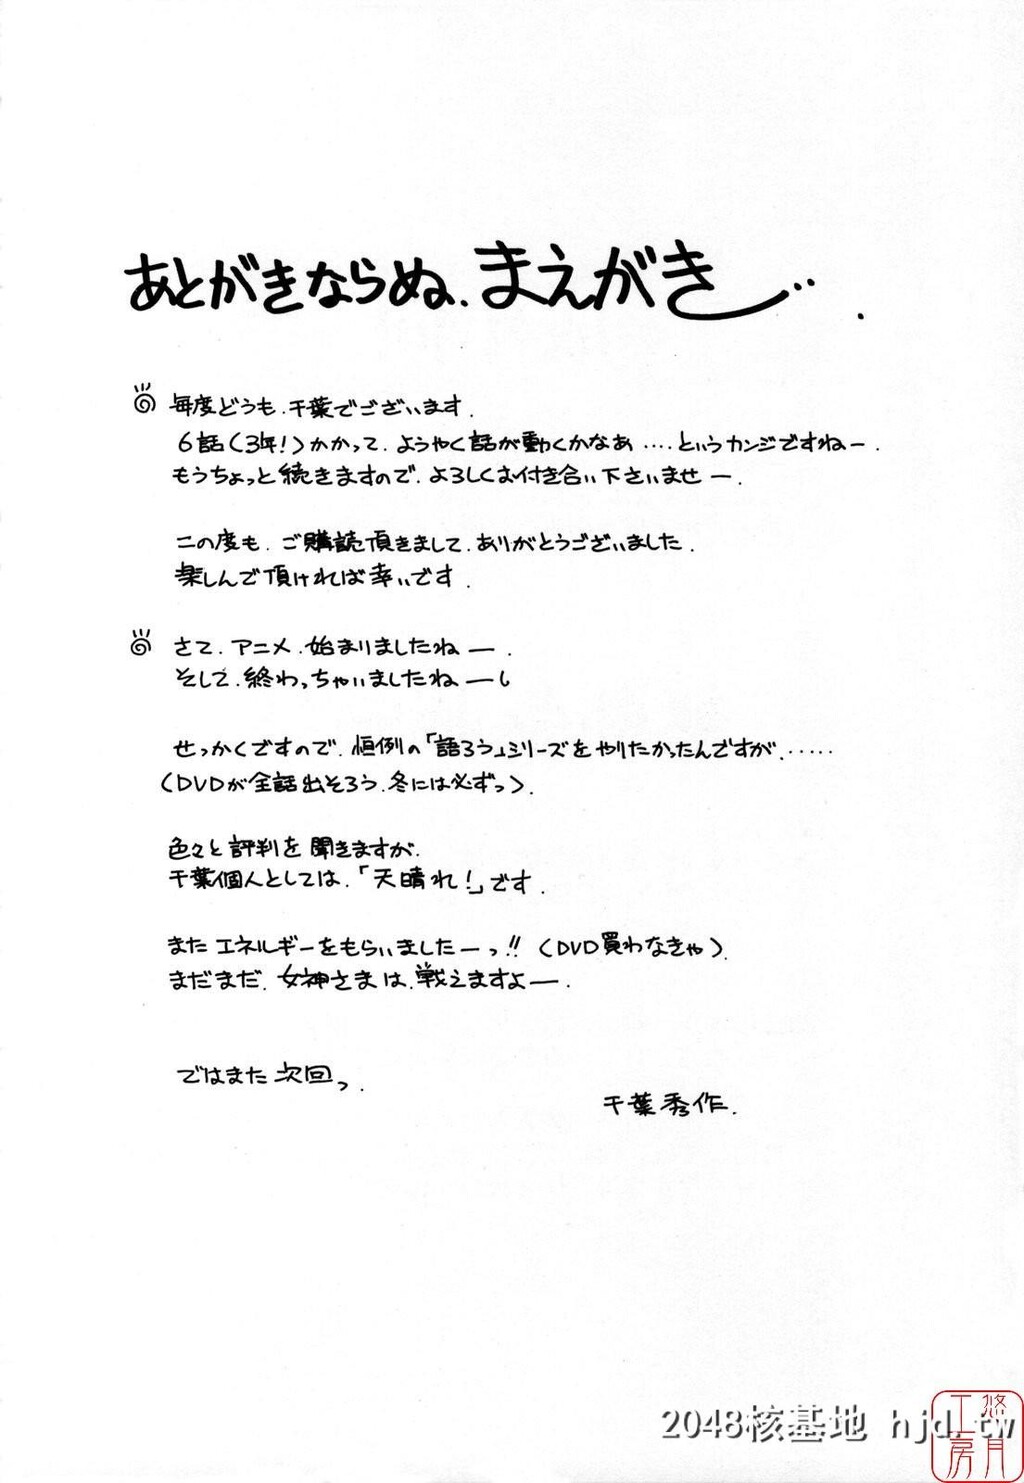 あとがきならぬ、まえがき…．
毎度どうも、千葉でございます．
6話(3年!)かかって、ようやく話が動くかなぁ……というカンジですねー．
もうちょっと続きますので、よろしくお付き合い下さいませー．
この度も、ご購読頂きまして、ありがとうございました．
楽しんで頂ければ幸いです．
さて、アニメ、始まりましたねー．
そして、終わっちゃいましたねー
せっかくですので、恒例の「語ろう」シリーズをやりたかったんですが、……
(DVDが全話出そろう、冬には必ずっ)．
色々と評判を聞きますが、
千葉個人としては、「天晴れ!」です．
またエネルギーをもらいましたーっ!!(DVD買わなきゃ)．
まだまだ、女神さまは、戦えますよー．
ではまた次回っ．
千葉秀作．
2048核基地 hjd.tw
悠月工房